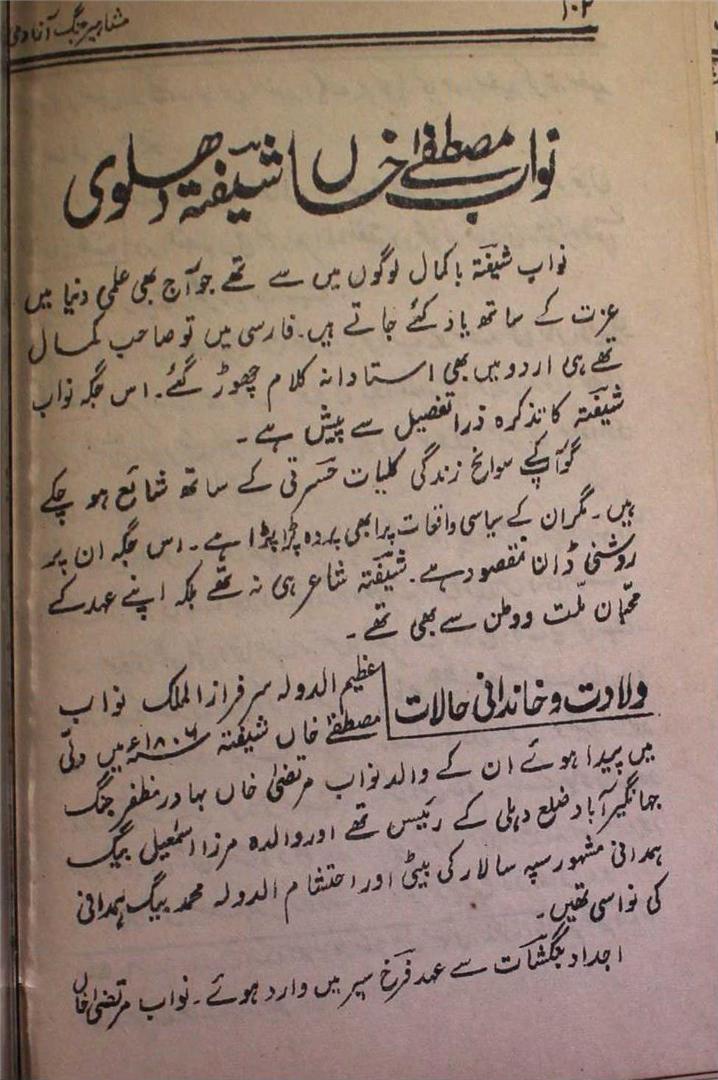 ۱۰۲
مشاہیر جنگ آزادی
نواب مصطفےٰ خاں شیفتہ دھلوی
نواب شیفتہ باکمال لوگوں میں سے تھے جو آج بھی علمی دنیا میں
عزت کے ساتھ یاد کئے جاتے ہیں۔ فارسی میں تو صاحب کمال
تھے ہی اردو میں بھی استادانہ کلام چھوڑ گئے۔ اس جگہ نواب
شیفتہ کا تذکرہ ذرا تفصیل سے پیش ہے۔
گو آپکے سوانح زندگی کلیات حسرتی کے ساتھ شائع ہو چکے
ہیں۔ مگر ان کے سیاسی واقعات پر ابھی پردہ پڑا ہے۔ اس جگہ ان پر
روشنی ڈالنا مقصود ہے۔ شیفتہ شاعر ہی نہ تھے بلکہ اپنے عہد کے
محبان ملت و وطن سے بھی تھے۔
ولادت و خاندانی حالات عظیم الدولہ سرفراز الملک نواب
مصطفےٰ خاں شیفتہ ۱۸۰۶ء میں دلی
میں پیدا ہوئے ان کے والد نواب مرتضیٰ خاں بہادر مظفر جنگ
جہانگیر آباد ضلع دہلی کے رئیس تھے اور والدہ مرزا اسمٰعیل بیگ
ہمدانی مشہور سپہ سالار کی بیٹی اور احتشام الدولہ محمد بیگ ہمدانی
کی نواسی تھیں۔
اجداد بنگشات سے عہد فرخ سیر میں وارد ہوئے۔ نواب مرتضیٰ خاں